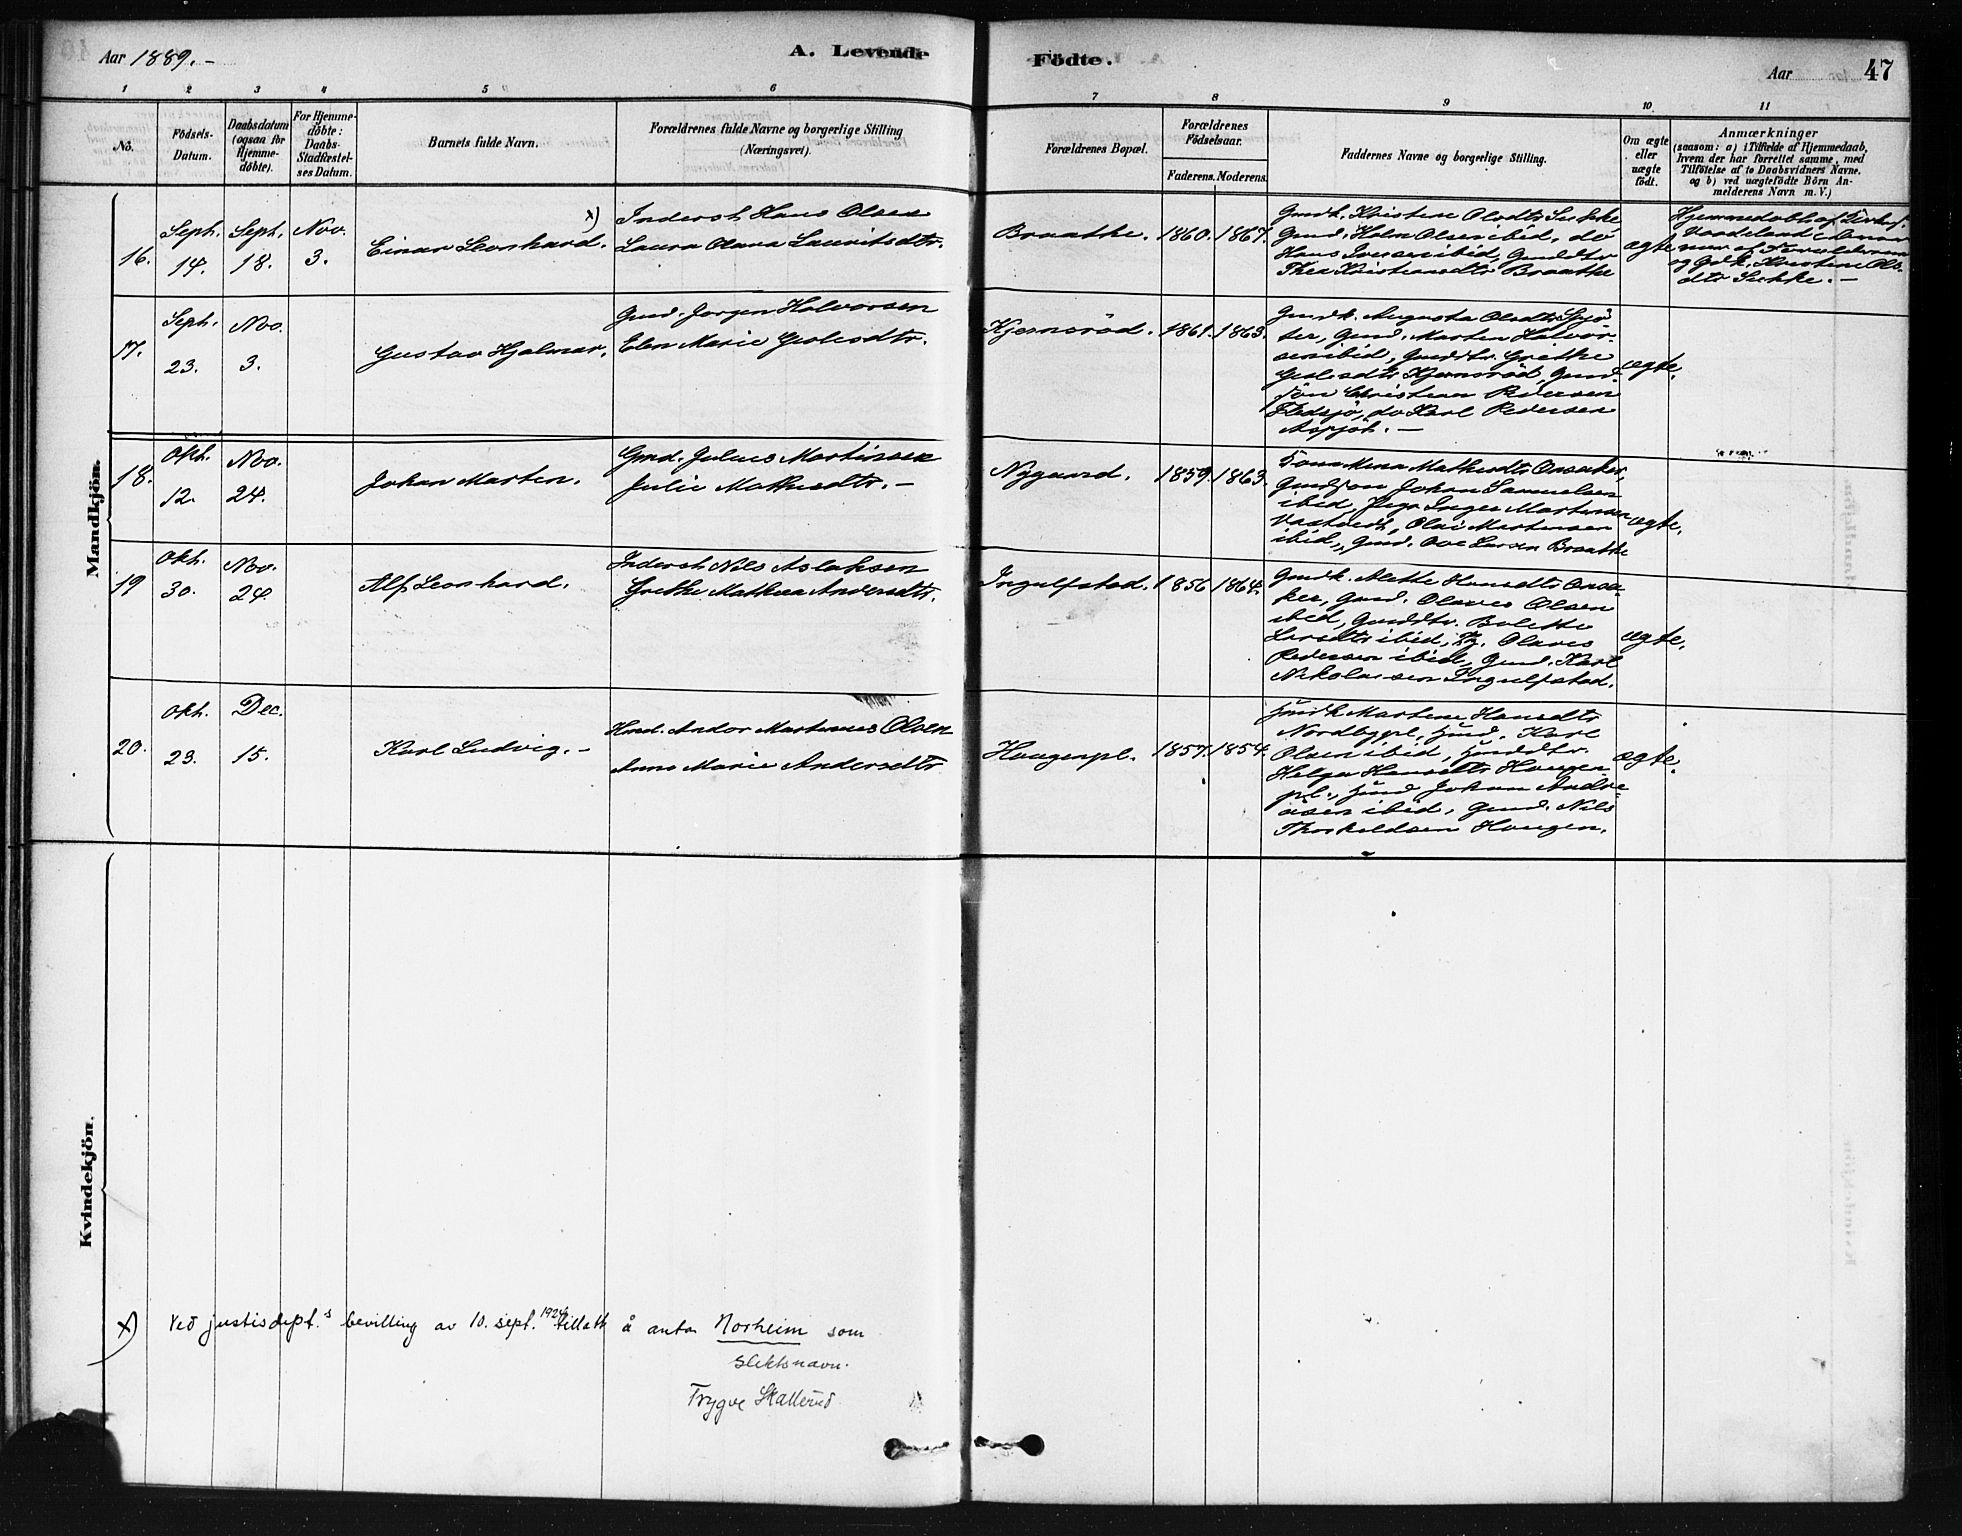 Aar 1889.-
A. Levende
Födte.
Aar
47
1 2 3 4 5 6 7 8 9 10 11
No.
Födsels-
Datum.
Daabsdatum
(ogsaa for
Hjemme-
döbte).
For Hjemme-
döbte:
Daabs-
Stadfæstel-
ses Datum.
Barnets fulde Navn.
Forældrenes fulde Navne og borgerlige Stilling
(Næringsvei).
Forældrenes Bopæl.
Forældrenes
Födselsaar.
Faderens. Moderens.
Faddernes Navne og borgerlige Stilling.
Om ægte
eller
uægte
födt.
Anmærkninger
(saasom: a) i Tilfælde af Hjemmedaab,
hvem der har forrettet samme, med
Tilföielse af to Daabsvidners Navne.
og b) ved uægtefödte Börn An-
melderens Navn m. V.)
Mandkjön.
16.
Sept.
14.
Sept.
18.
Nov.
3.
Einar Leonhard.
x)
Inderst Hans Olsen
Laura Olava Lauritsdtr.
Braathe.
1860.
1867.
Gmdk. Kristine Olsdtr Sukke
Gmd. Holm Olsen ibid, do
Hans Iversen ibid, Gmddtr
Thea Kristiansdtr Braathe
ægte
Hjemmedøbt af
og Gmk. Kristine Ols-
dtr Sukke.-
17.
Sept.
23.
Nov.
3.
Gustav Hjalmar.
Gmd. Jørgen Halvorsen
Elen Marie
Kjernsröd.
1861.
1863.
Gmdk. Augusta Olsdtr
Gmd. Marten Halvor-
sen ibid, Gmddtr. Grethe
Kjernsröd, Gmd.
sön Christian Pedersen
do Karl Pedersen
ægte.
18.
Okt.
12.
Nov.
24.
Johan Marten.
Gmd. Julius Martinsen
Julie Mathisdtr.-
Nygaard.
1859.
1863.
Mathisdtr Onsaker,
Gmdsøn Johan Samuelsen
ibid, Pige Inger Martinsen
Olai Martensen
ibid, Gmd. Ove Larsen Braathe
ægte.
19
Okt.
30.
Nov.
24.
Alf Leonhard.
Inderst Nils Aslaksen
Grethe Mathea Andersdtr.
Ingulfstad.
1856
1864.
Gmdk. Alette Hansdtr Onsa-
ker, Gmd. Olaves Olsen
ibid, Gmddtr. Bolette
Larsdtr ibid, Olaves
Pedersen ibid, Gmd. Karl
Nikolaisen Ingulfstad.
ægte.
20.
Okt.
23.
Dec.
15.
Karl Ludvig.-
Hmd. Andor Martinius Olsen
Anne Marie Andersdtr
Haugenpl.
1857.
1854.
Hmdk Martine Hansdtr
Nordbypl, Hmd. Karl
Olsen ibid, Hmddtr.
Helga Hansdtr Haugen
pl., Hmd Johan Andre-
asen ibid, Gmd. Nils
Thorkildsen Haugen.
ægte.
Kvindekjön.
x) Ved justisdept.s bevilling av 10. sept. 1924 tillatt å anta Norheim som
slektsnavn.
Trygve Skallerud